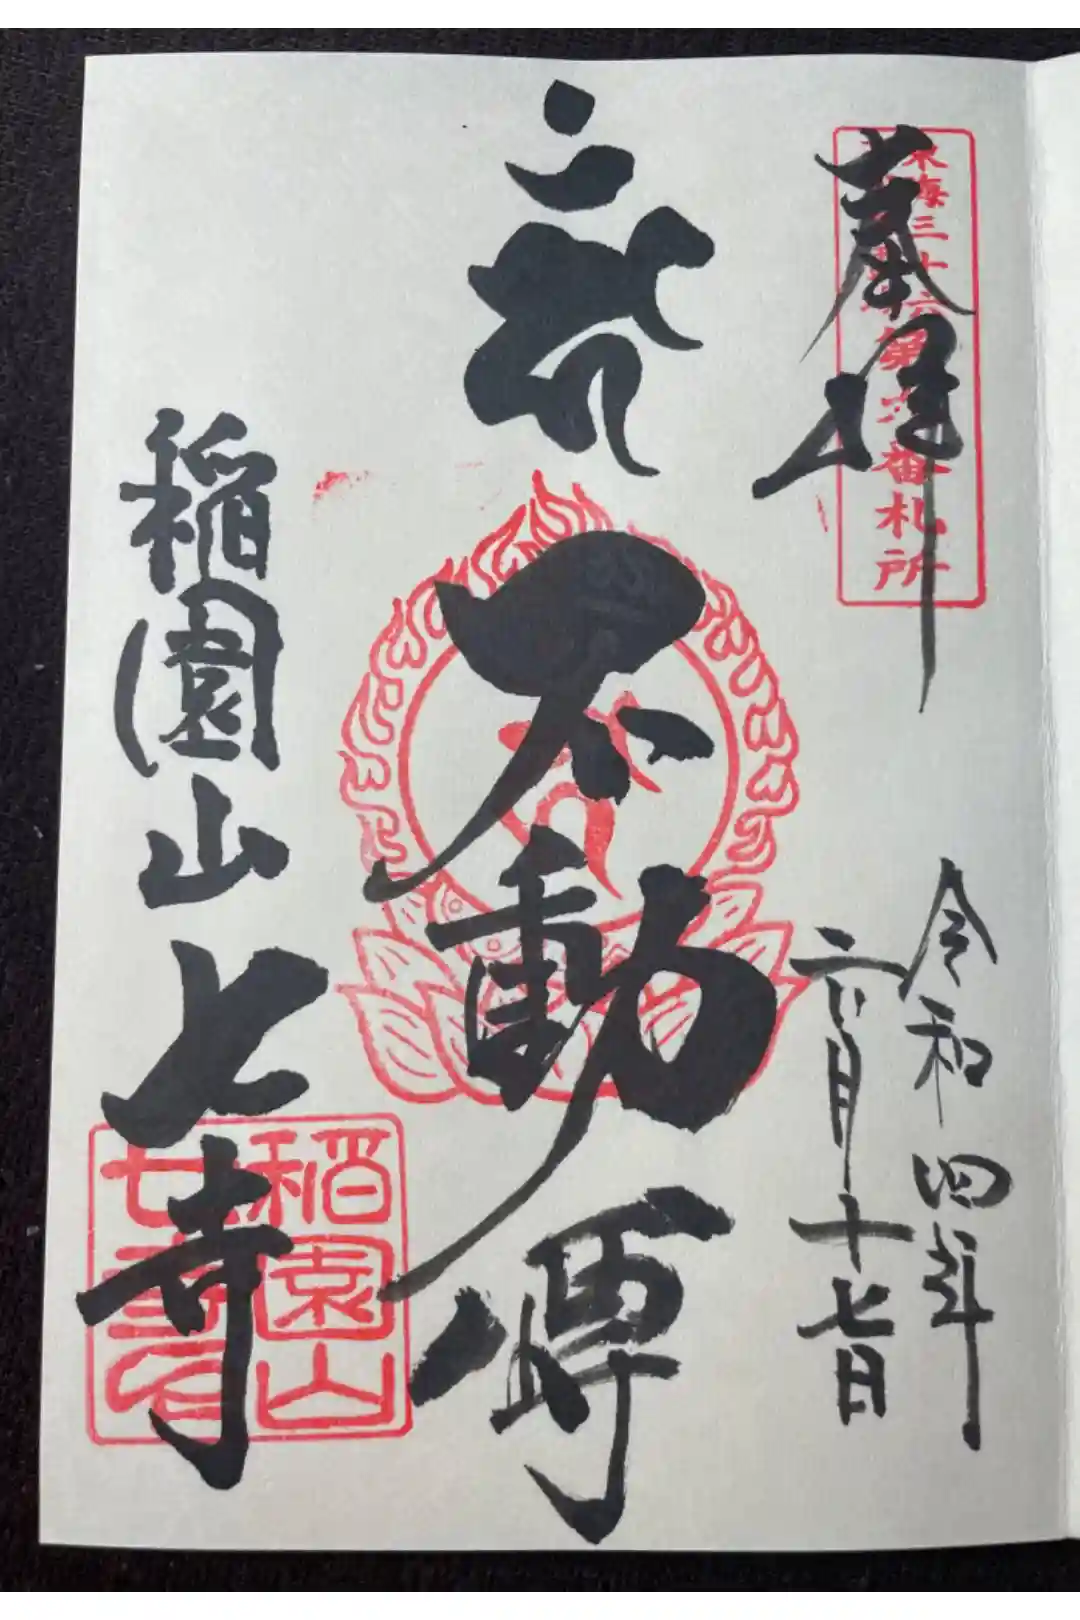 奉拝
東海三十六不動尊第六番札所
令和四年
六月十七日
不動尊
稲園山七寺
稲園山
七寺